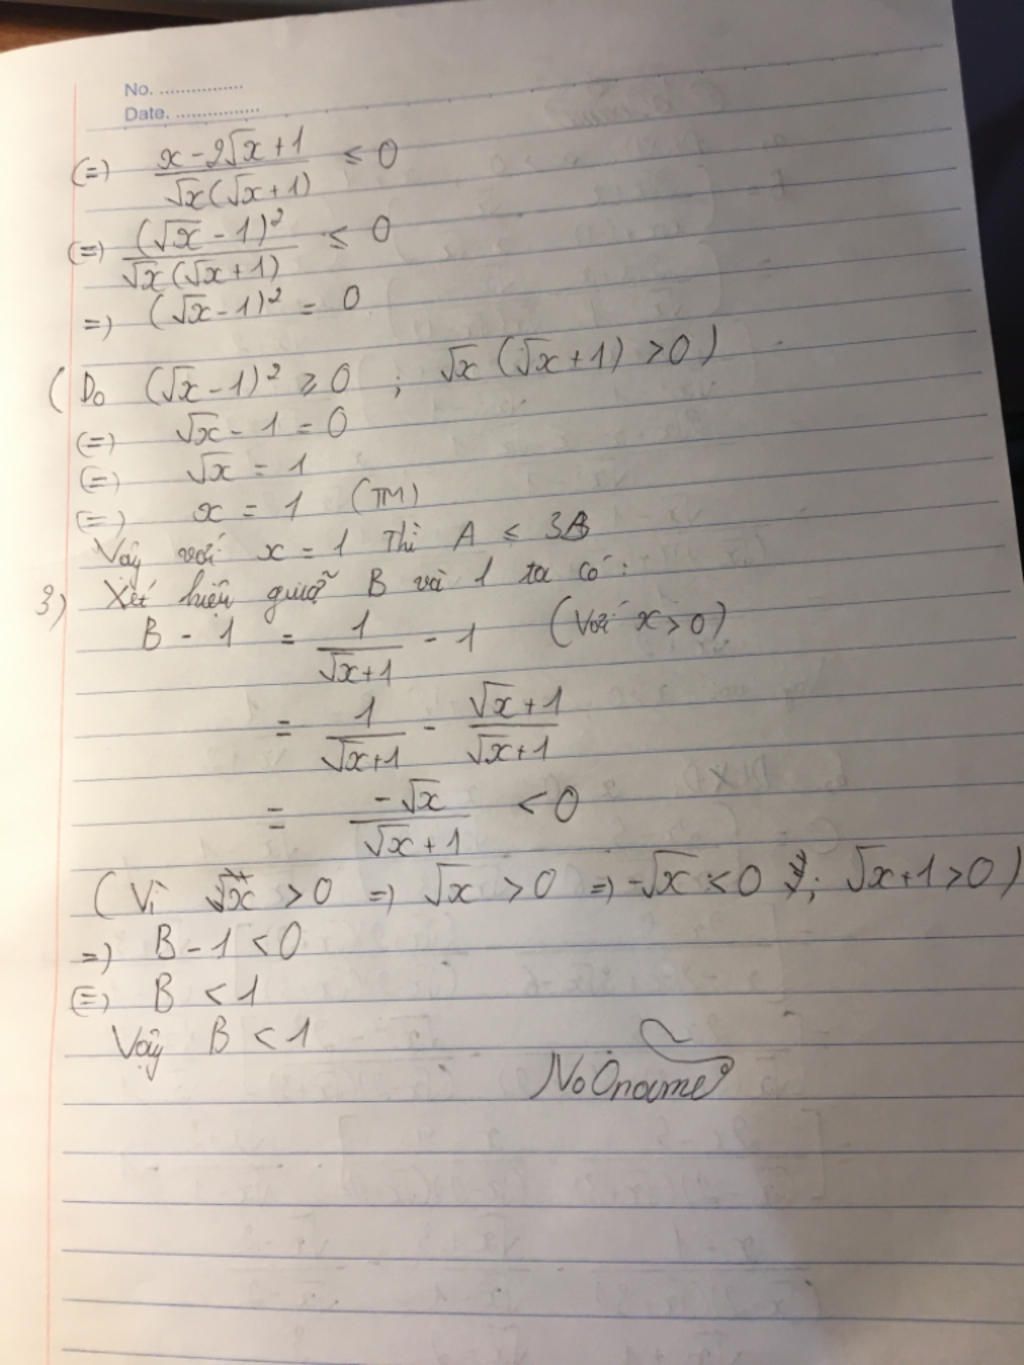 No. ................
Date. ................
(=) (x - 2√x + 1)/(√x(√x + 1)) ≤ 0
(=) (√x - 1)²/(√x(√x + 1)) ≤ 0
=) (√x - 1)² = 0
(Do (√x - 1)² ≥ 0 ; √x (√x + 1) > 0)
(=) √x - 1 = 0
(=) √x = 1
(=) x = 1 (TM)
Vậy với x = 1 Thì A ≤ 3B
3) Xét hiệu giữa B và 1 ta có:
B - 1 = 1/(√x + 1) - 1 (Với x > 0)
= 1/(√x + 1) - (√x + 1)/(√x + 1)
= -√x/(√x + 1) < 0
(Vì x > 0 =) √x > 0 =) -√x < 0 ; √x + 1 > 0)
=) B - 1 < 0
(=) B < 1
Vậy B < 1
NoOname